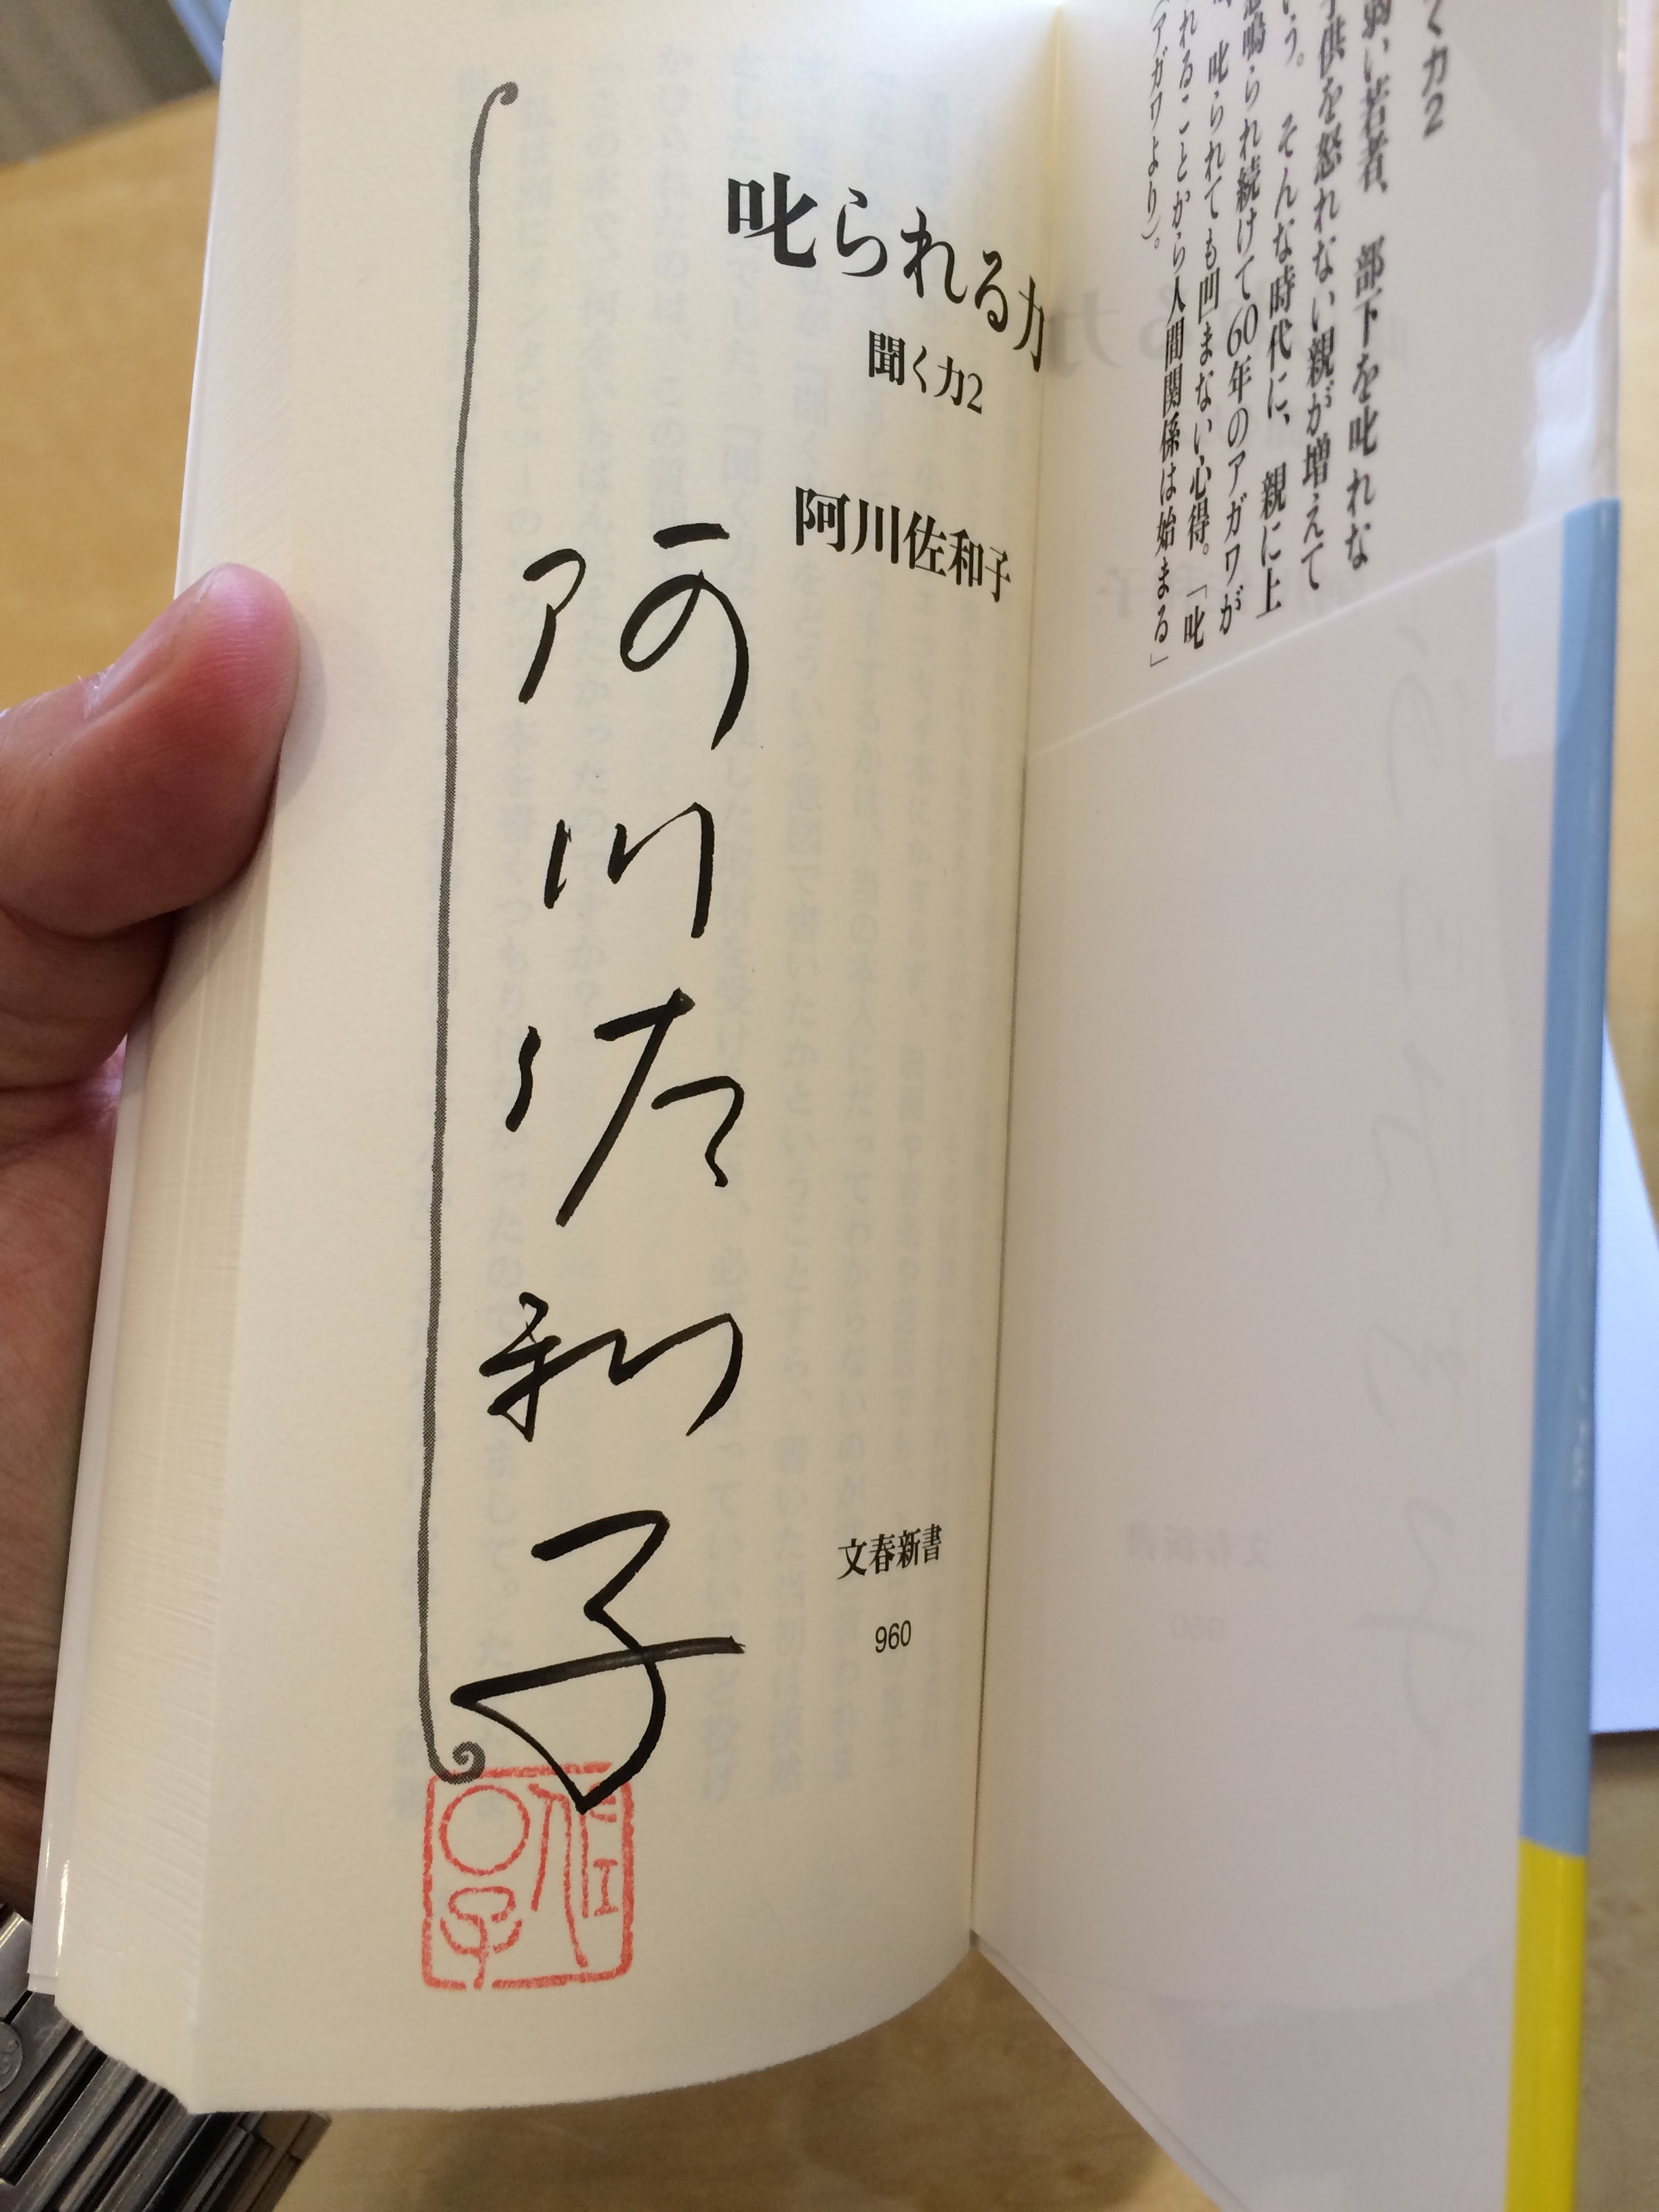 く力2
弱い若者、部下を叱れな
子供を怒れない親が増えて
いう。そんな時代に、親に上
鳴られ続けて60年のアガワが
叱られても凹まない心得。「叱
れることから人間関係は始まる」
(アガワより)。
叱られる力
聞く力2
阿川佐和子
文春新書
960
阿川佐和子
佐○子